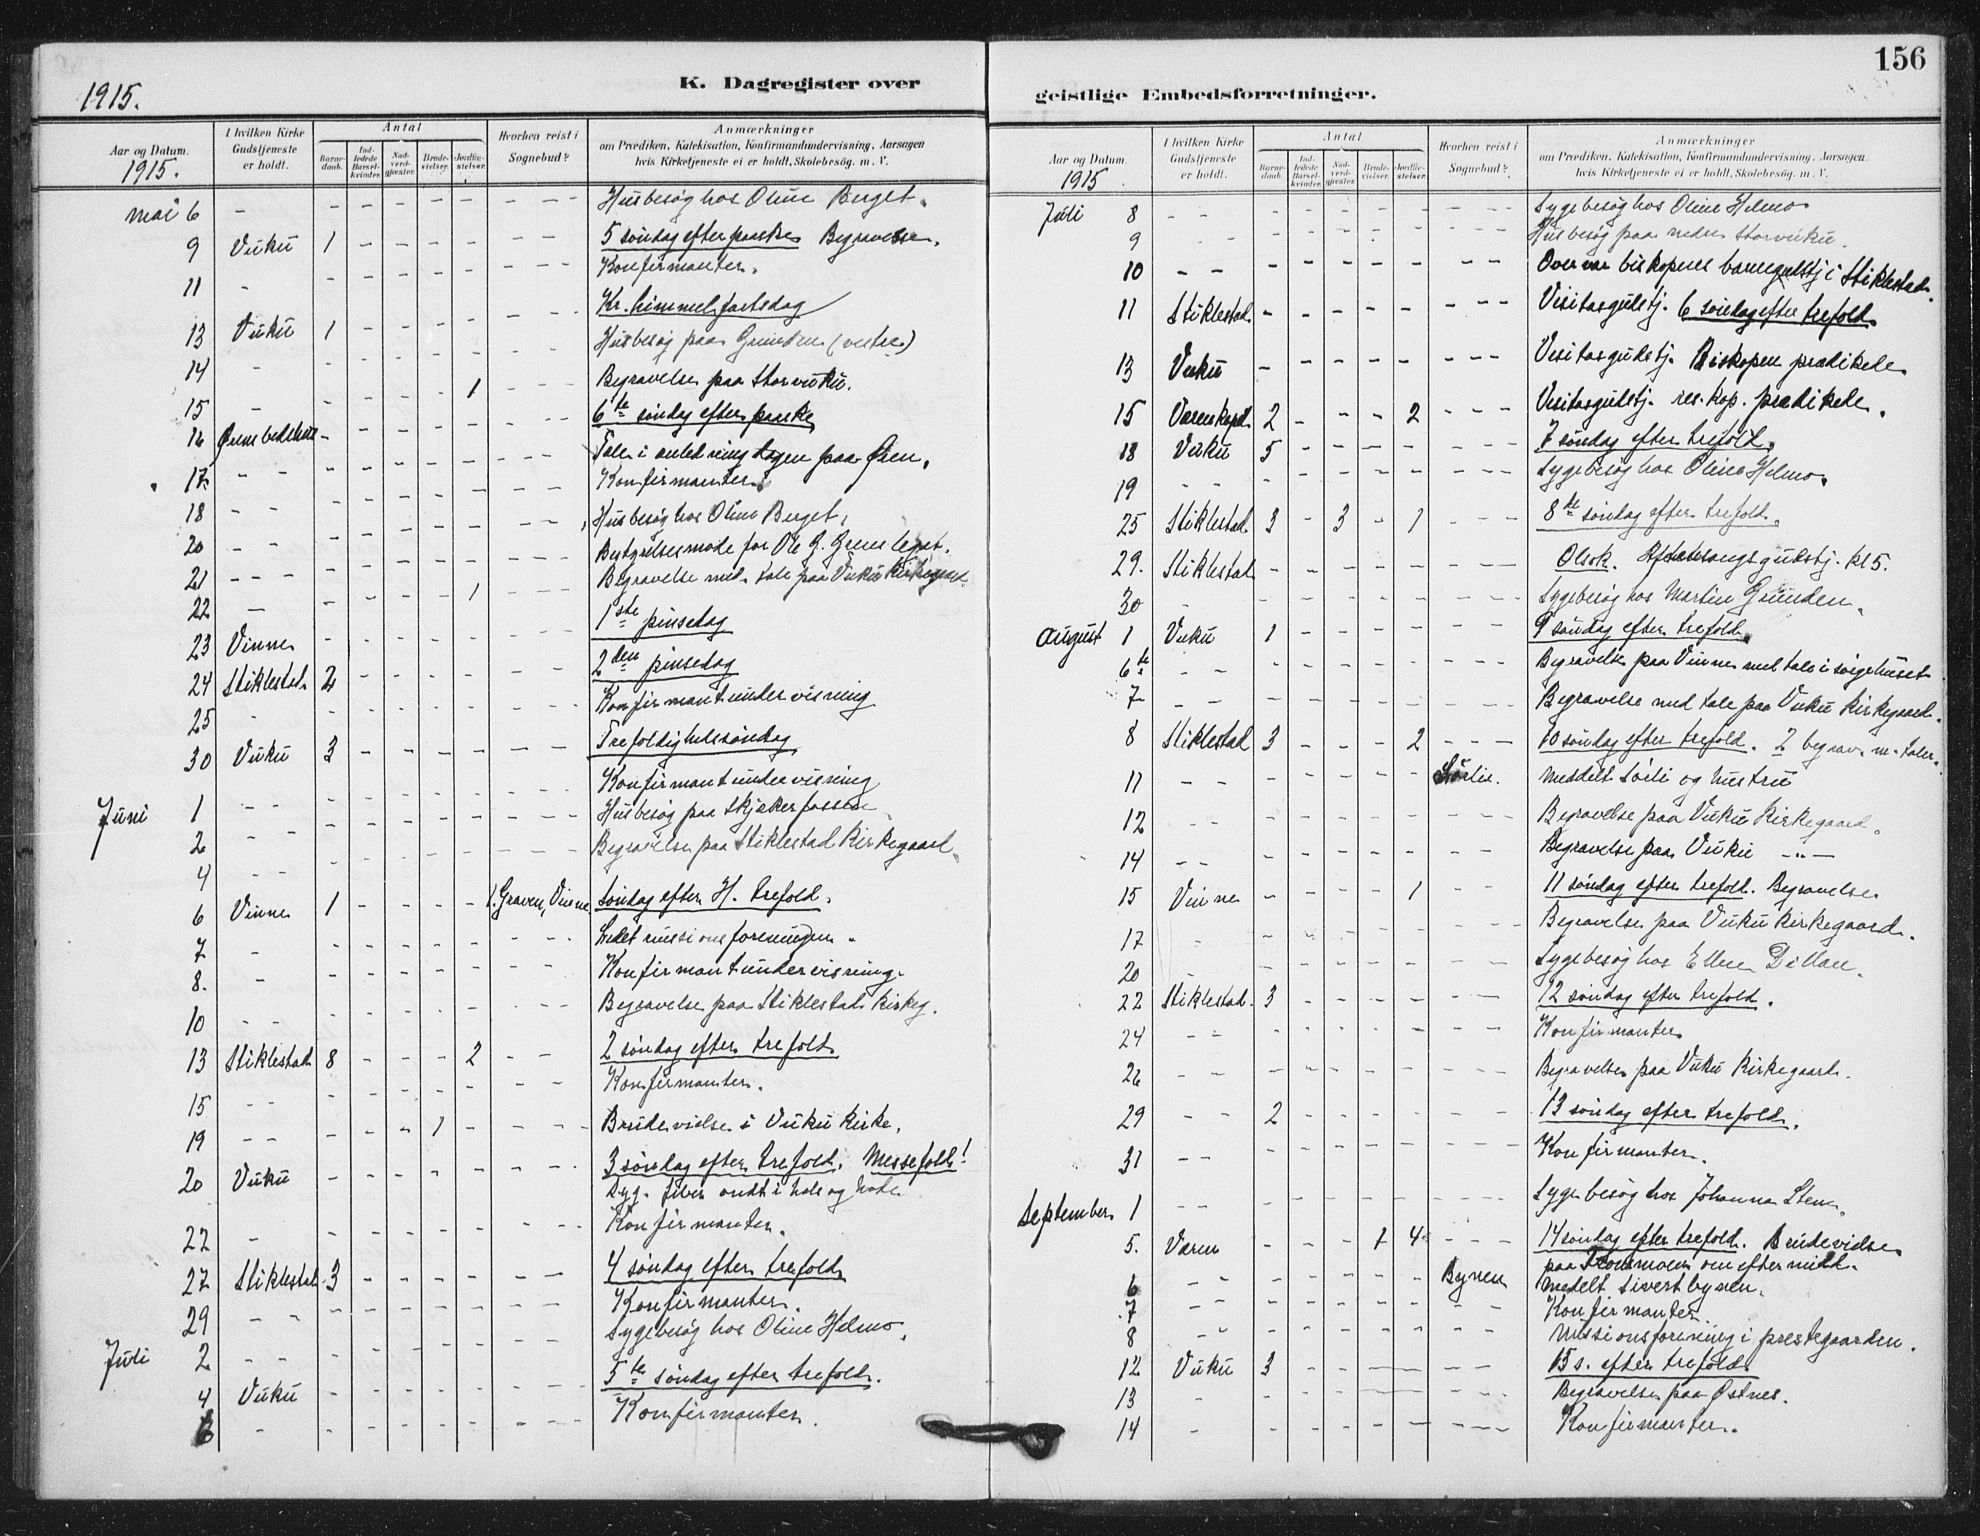 1915.
K. Dagregister over
Aar og Datum.
1915.
I hvilken Kirke Gudstjeneste er holdt.
Antal
Barnedaab.
Indledede Barselkvinder.
Nadverdgjester.
Brudevielser.
Jordfæstelser.
Hvorhen reist i Sognebud?
Anmærkninger
om Prædiken, Katekisation, Konfirmandundervisning, Aarsagen
hvis Kirketjeneste ei er holdt, Skolebesøg. m. V.
Mai 6 - Husbesøg hos Oline Berget.
9 Vuku 1 - - - - - 5 søndag efter paaske Begravelse.
11 - Konfirmanter.
13 Vuku 1 - - - - - Kr. himmelfartsdag
14 - Husbesøg paa Grunden (vestre)
15 - - - - - 1 - Begravelse paa Storvuku.
16 Ørens bedehus - 6te søndag efter paaske
17 - - Tale i anledning dagen paa Øren.
Konfirmanter.
18 - - Husbesøg hos Oline Berget.
20 - - Bestyrelsesmøde for Ole G. Grens legat.
21 - - - Begravelse med tale paa Vuku Kirkegaard
22 - - - - - 1 -
23 Vinne - 1ste pinsedag
24 Stiklestad 2 - - - - - 2den pinsedag
25 - Konfirmantundervisning
30 Vuku 3 - - - - - Trefoldighetssøndag
Juni 1 - - Konfirmantundervisning
2 - - Husbesøg paa Skjækerfossen
4 - - Begravelse paa Stiklestad Kirkegaard.
6 Vinne 1 - - - - 1. Graven, Vinne Søndag efter H. trefold.
7 - Ledet missionsforeningen.
8. - Konfirmantundervisning.
10 - - Begravelse paa Stiklestads Kirkeg.
13 Stiklestad 8 - - - 2 - - 2 søndag efter trefold
15 - - Konfirmanter.
19 - - - - - 1 - Brudevielse i Vuku Kirke.
20 Vuku - - - - - 3 søndag efter trefold. Messefald!
Syg. feber ondt i hals og hode
22 - Konfirmanter.
27 Stiklestad 3 - - - - - 4 søndag efter trefold
29 - - Konfirmanter.
Juli 2 - - Sygebesøg hos Oline Helmo.
4 Vuku - - - - - 5te søndag efter trefold.
6 - Konfirmanter.
156
geistlige Embedsforretninger.
Aar og Datum.
1915
I hvilken Kirke Gudstjeneste er holdt.
Antal
Barnedaab.
Indledede Barselkvinder.
Nadverdgjester.
Brudevielser.
Jordfæstelser.
Hvorhen reist i Sognebud?
Anmærkninger
om Prædiken, Katekisation, Konfirmandundervisning, Aarsagen
hvis Kirketjeneste ei er holdt, Skolebesøg. m. V.
Juli 8 - - Sygebesøg hos Oline Helmo
9 - - Husbesøg paa nedre Storvuku.
10 - - Overvar biskopens barnegudstj i Stiklestad.
11 Stiklestad - - - - - Visitasgudstj. 6 søndag efter trefold.
13 Vuku - - - - - Visitasgudstj. Biskopen prædikede
15 Værenkapel 2 - - - 2 - - - Visitasgudstj. res. kap. prædikede.
18 Vuku 5 - - - - - 7 søndag efter trefold.
19 - - Sygebesøg hos Oline Helmo.
25 Stiklestad 3 - 3 - 1 - - - 8de søndag efter trefold.
29. Stiklestad - - - - - Olsok. Aftensangsgudstj. kl 5.
30 - Sygebesøg hos Martin Grunden.
August 1 Vuku 1 - - - - - 9 søndag efter trefold.
6te - - Begravelse paa Vinne med tale i sørgehuset
7 - - Begravelse med tale paa Vuku Kirkegaard.
8 Stiklestad 3 - - - 2 - - - 10 søndag efter trefold. 2 begrav. m. taler.
11 - - Sørlie. Meddelt Sørli og hustru
12 - - Begravelse paa Vuku Kirkegaard.
14 - - Begravelse paa Vuku -"-
15 Vinne - - - - 1 - 11 søndag efter trefold. Begravelse
17 - Begravelse paa Vuku Kirkegaard.
20 - Sygebesøg hos Ellen Dillan.
22 Stiklestad. 3 - - - - - 12 søndag efter trefold.
24 - - Konfirmanter
26 - - Begravelse paa Vuku Kirkegaard.
29 - - 2 - - - - - 13 søndag efter trefold.
31 - - Konfirmanter.
September 1 - - Sygebesøg hos Johanna Stene.
5. Væren - - - 1 4 - - - 14 søndag efter trefold. Brudevielse
paa om eftermidd.
6 - - Bynen Meddelt Sivert bynen.
7 - - Konfirmanter.
8 - - Missionsforening i prestegaarden.
12 Vuku 3 - - - - - 15 s. efter trefold.
13 - Begravelse paa Østnes.
14 - Konfirmanter.